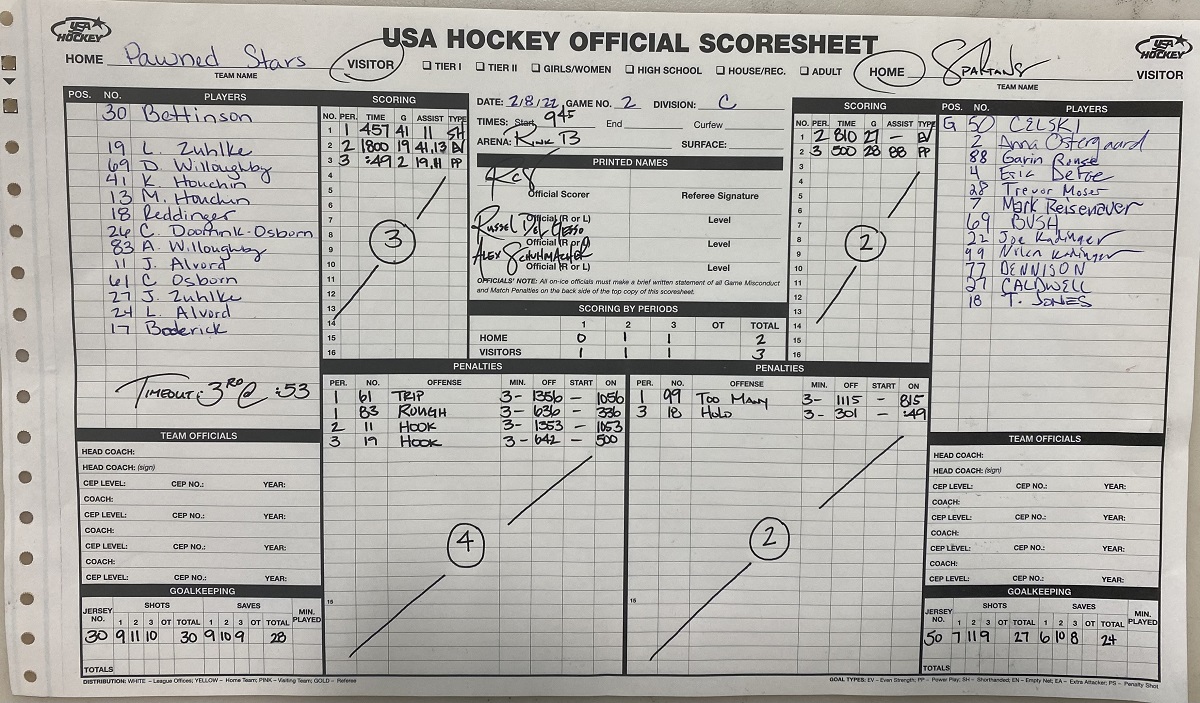 USA HOCKEY
USA HOCKEY OFFICIAL SCORESHEET
USA HOCKEY
HOME Pawned Stars VISITOR
TEAM NAME
☐ TIER I ☐ TIER II ☐ GIRLS/WOMEN ☐ HIGH SCHOOL ☐ HOUSE/REC. ☐ ADULT
HOME Spartans VISITOR
TEAM NAME
POS. NO. PLAYERS
30 Bettinson
19 L. Zuhlke
69 D. Willoughby
41 K. Houchin
13 M. Houchin
18 Reddinger
26 C. Doominik-Osborn
83 A. Willoughby
11 J. Alvord
61 C Osborn
27 J. Zuhlke
24 L. Alvord
17 Boderick
TIMEOUT: 3RD @ :53
SCORING
NO. PER. TIME G ASSIST TYPE
1 1 457 41 11 SH
2 2 1800 19 41,13 EV
3 3 :49 2 19,11 PP
4
5
6
7
8
9
10
11
12
13
14
15
16
3
DATE: 2/8/22 GAME NO. 2 DIVISION: C
TIMES: Start 945 End Curfew
ARENA: RINK B SURFACE:
PRINTED NAMES
Official Scorer Referee Signature
RUSSEL DEL GESSO
Official (R or L) Level
ALEX SCHUHMACHER
Official (R or L) Level
Official (R or L) Level
OFFICIALS' NOTE: All on-ice officials must make a brief written statement of all Game Misconduct
and Match Penalties on the back side of the top copy of this scoresheet.
SCORING BY PERIODS
1 2 3 OT TOTAL
HOME 0 1 1 2
VISITORS 1 1 1 3
SCORING
NO. PER. TIME G ASSIST TYPE
1 2 810 27 — EV
2 3 500 28 88 PP
3
4
5
6
7
8
9
10
11
12
13
14
15
16
2
POS. NO. PLAYERS
G 50 CELSKI
2 Anna Ostergaard
88 Garin Rouse
4 Eric DeFoe
28 Trevor Moser
7 Mark Reisenauer
69 BUSH
22 Joe Kadinger
99 Nolan Kadinger
77 DENNISON
27 CALDWELL
18 T. JONES
PENALTIES
PER. NO. OFFENSE MIN. OFF START ON
1 61 TRIP 3- 1356 — 1056
1 83 ROUGH 3- 636 — 336
2 11 HOOK 3- 1353 — 1053
3 19 HOOK 3- 642 — 500
4
15
PENALTIES
PER. NO. OFFENSE MIN. OFF START ON
1 99 TOO MANY 3- 1115 — 815
3 18 HOLD 3- 301 — :49
2
15
TEAM OFFICIALS
HEAD COACH:
HEAD COACH: (sign)
CEP LEVEL: CEP NO.: YEAR:
COACH:
CEP LEVEL: CEP NO.: YEAR:
COACH:
CEP LEVEL: CEP NO.: YEAR:
COACH:
CEP LEVEL: CEP NO.: YEAR:
GOALKEEPING
JERSEY NO. SHOTS SAVES MIN. PLAYED
1 2 3 OT TOTAL 1 2 3 OT TOTAL
30 9 11 10 30 9 10 9 28
TOTALS
TEAM OFFICIALS
HEAD COACH:
HEAD COACH: (sign)
CEP LEVEL: CEP NO.: YEAR:
COACH:
CEP LEVEL: CEP NO.: YEAR:
COACH:
CEP LEVEL: CEP NO.: YEAR:
COACH:
CEP LEVEL: CEP NO.: YEAR:
GOALKEEPING
JERSEY NO. SHOTS SAVES MIN. PLAYED
1 2 3 OT TOTAL 1 2 3 OT TOTAL
50 7 11 9 27 6 10 8 24
TOTALS
DISTRIBUTION: WHITE – League Offices; YELLOW – Home Team; PINK – Visiting Team; GOLD – Referee
GOAL TYPES: EV – Even Strength; PP – Power Play; SH – Shorthanded; EN – Empty Net; EA – Extra Attacker; PS – Penalty Shot